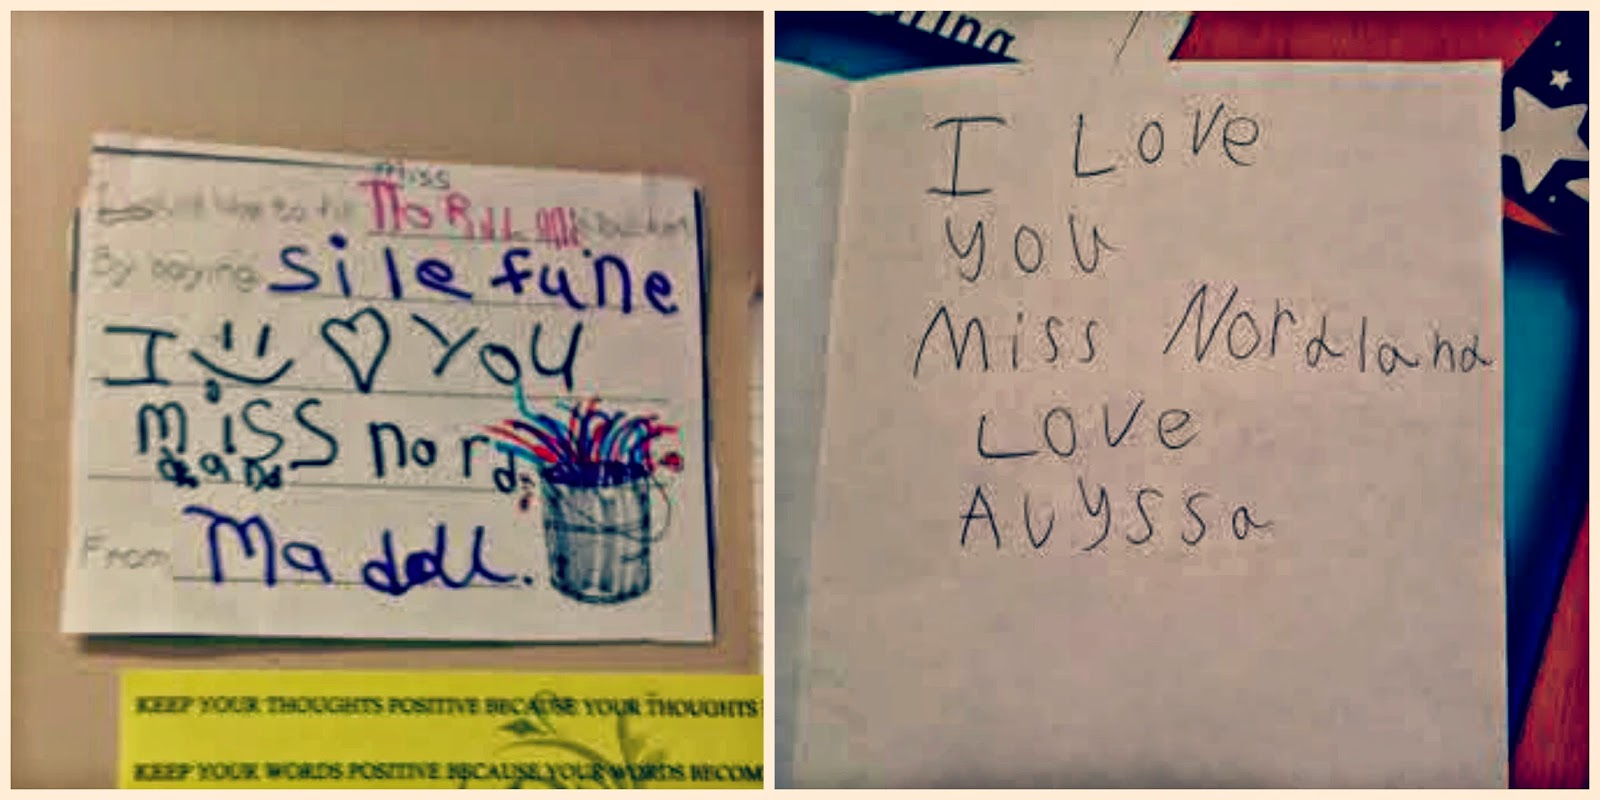 miss
would like to fill NoRdland bucket
By saying Si le fune
I You
miss nord
From
KEEP YOUR THOUGHTS POSITIVE BECAUSE YOUR THOUGHTS
KEEP YOUR WORDS POSITIVE BECAUSE YOUR WORDS BECOM
ring
I Love
you
Miss Nordland
Love
Alyssa